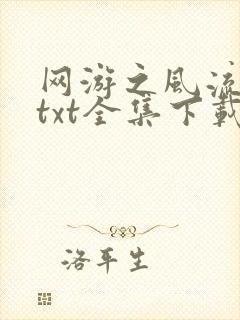 网游之风流
txt全集下载
洛平生